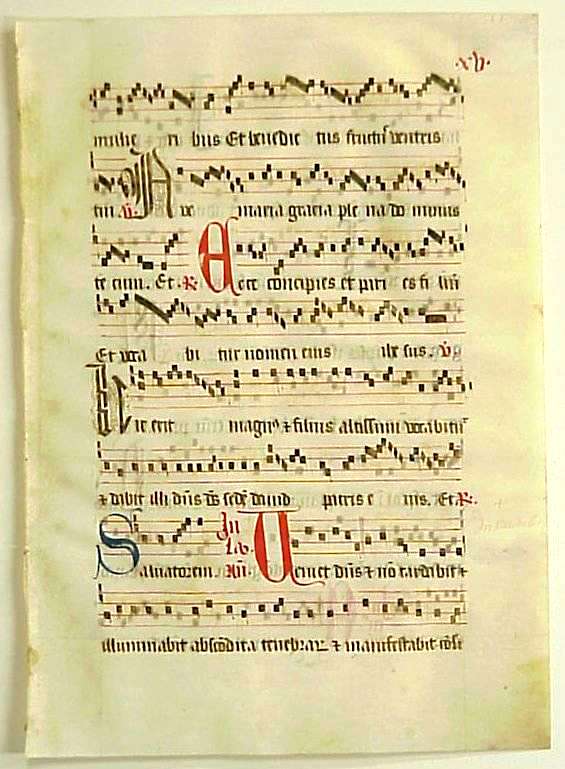 xv.
mulie ri bus Et benedic tus fructus ventris
tui v. A ve maria gracia ple na do minus
te cum. Et. R. Ecce concipies et pari es fi liu
Et voca bi tur nomen eius ihe sus. v
Hic erit magn⁹ ⁊ filius altissimi vocabitur
⁊ dabit illi dn̄s ds̄ sedē dauid patris e ius. Et R.
Saluatorem In Veniet dn̄s ⁊ nō tardabit ⁊
illuminabit abscōdita tenebraꝝ ⁊ manifestabit